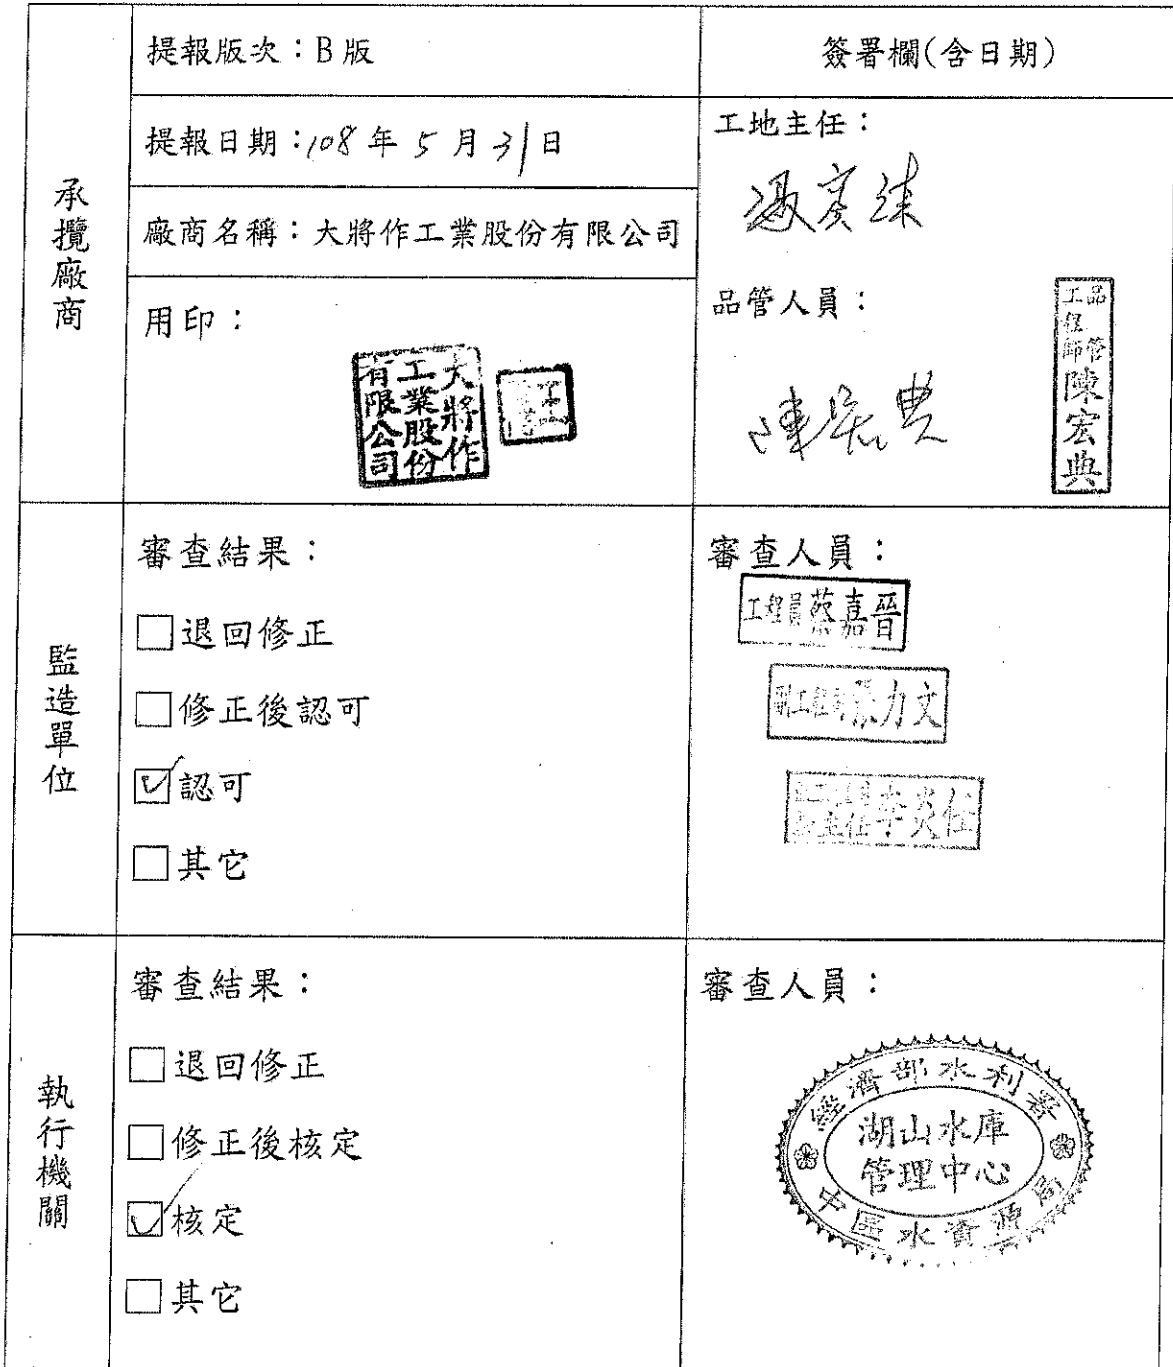 承攬廠商
提報版次：B版
簽署欄(含日期)
提報日期：108年5月31日
廠商名稱：大將作工業股份有限公司
用印：
大將作
工業股份
有限公司
王
工地主任：
品管人員：
品管
工程師
陳宏典
監造單位
審查結果：
□退回修正
□修正後認可
☑認可
□其它
審查人員：
工程員蔡嘉晉
副工程司張力文
主任李炎任
執行機關
審查結果：
□退回修正
□修正後核定
☑核定
□其它
審查人員：
經濟部水利署
湖山水庫
管理中心
中區水資源局